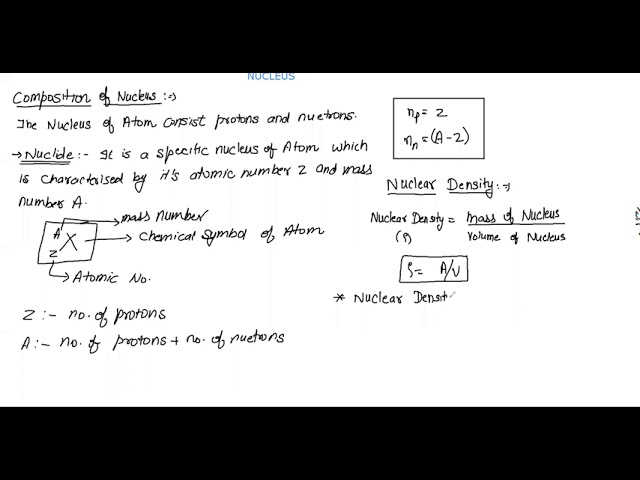 NUCLEUS
Composition of Nucleus :->
The Nucleus of Atom consist protons and nuetrons.
→ Nuclide :- It is a specific nucleus of Atom which
is characterised by it's atomic number Z and mass
number A.
mass number
A
X
Chemical Symbol of Atom
Z
Atomic No.
Z :- no. of protons
A :- no. of protons + no. of nuetrons
np = Z
nn = (A-Z)
Nuclear Density :->
Nuclear Density = mass of Nucleus
(ρ) Volume of Nucleus
ρ = A/V
* Nuclear Densit